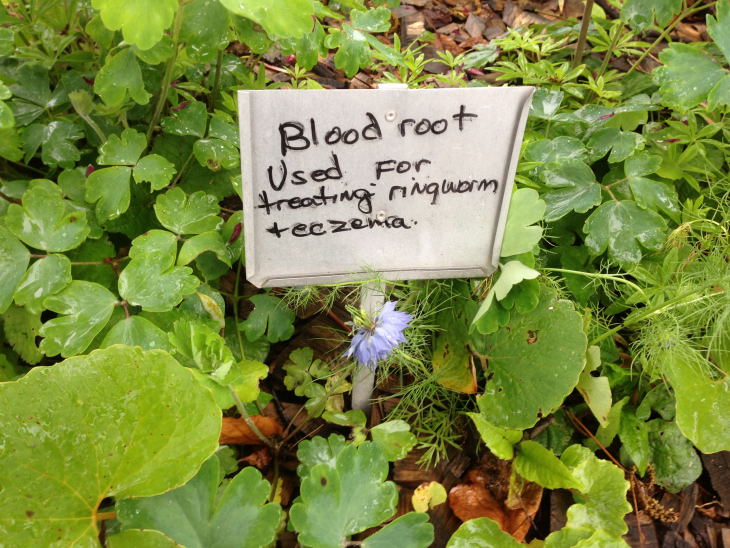 Blood root
Used For
treating ringworm
+eczema.